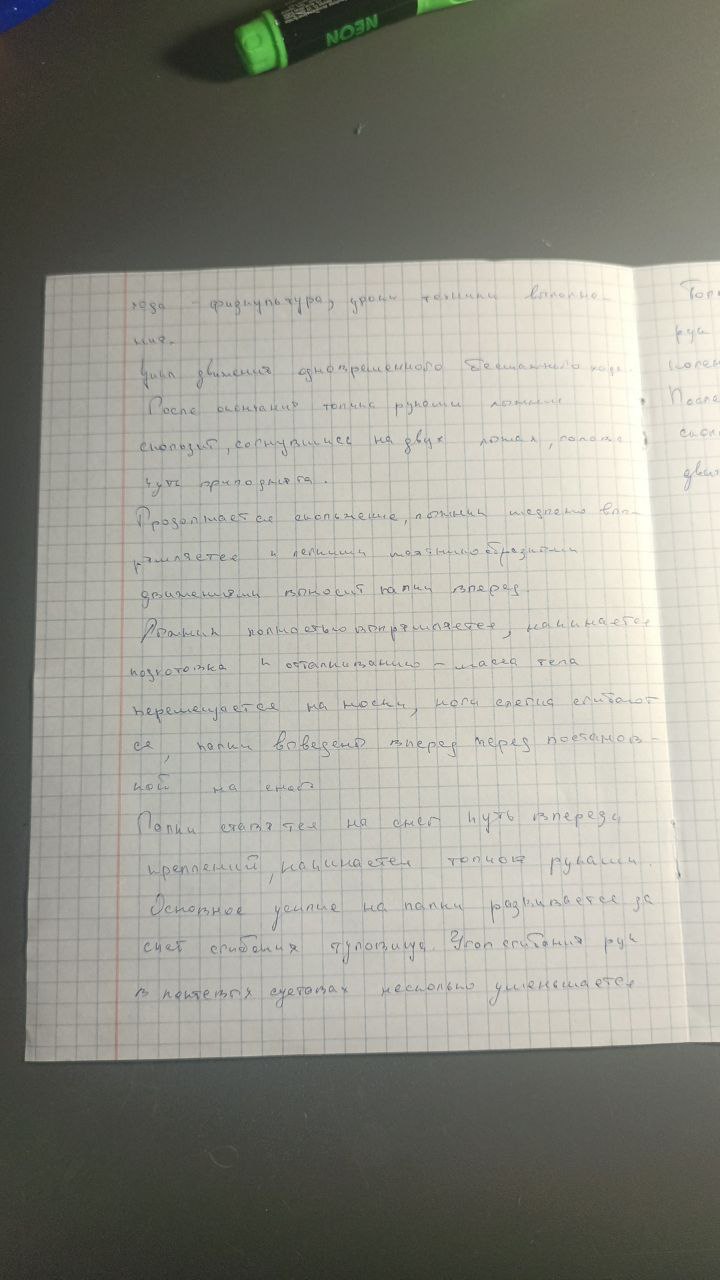 NEON
хода - физкультура, уроки техники выполне-
ния.
Цикл движения одновременного бесшажного хода.
После окончания толчка руками лыжник
скользит, согнувшись на двух лыжах, голова
чуть приподнята.
Продолжается скольжение, лыжник медленно вып-
рямляется и легкими маятникообразными
движениями выносит палки вперед.
Лыжник полностью выпрямляется, начинается
подготовка к отталкиванию - масса тела
перемещается на носки, ноги слегка сгибают
ся, палки выведены вперед перед постанов-
кой на снег
Палки ставятся на снег чуть впереди
креплений, начинается толчок руками.
Основное усилие на палки развивается за
счет сгибания туловища. Угол сгибания рук
в локтевых суставах несколько уменьшается
Толч
рук
колен
После
скол
движ